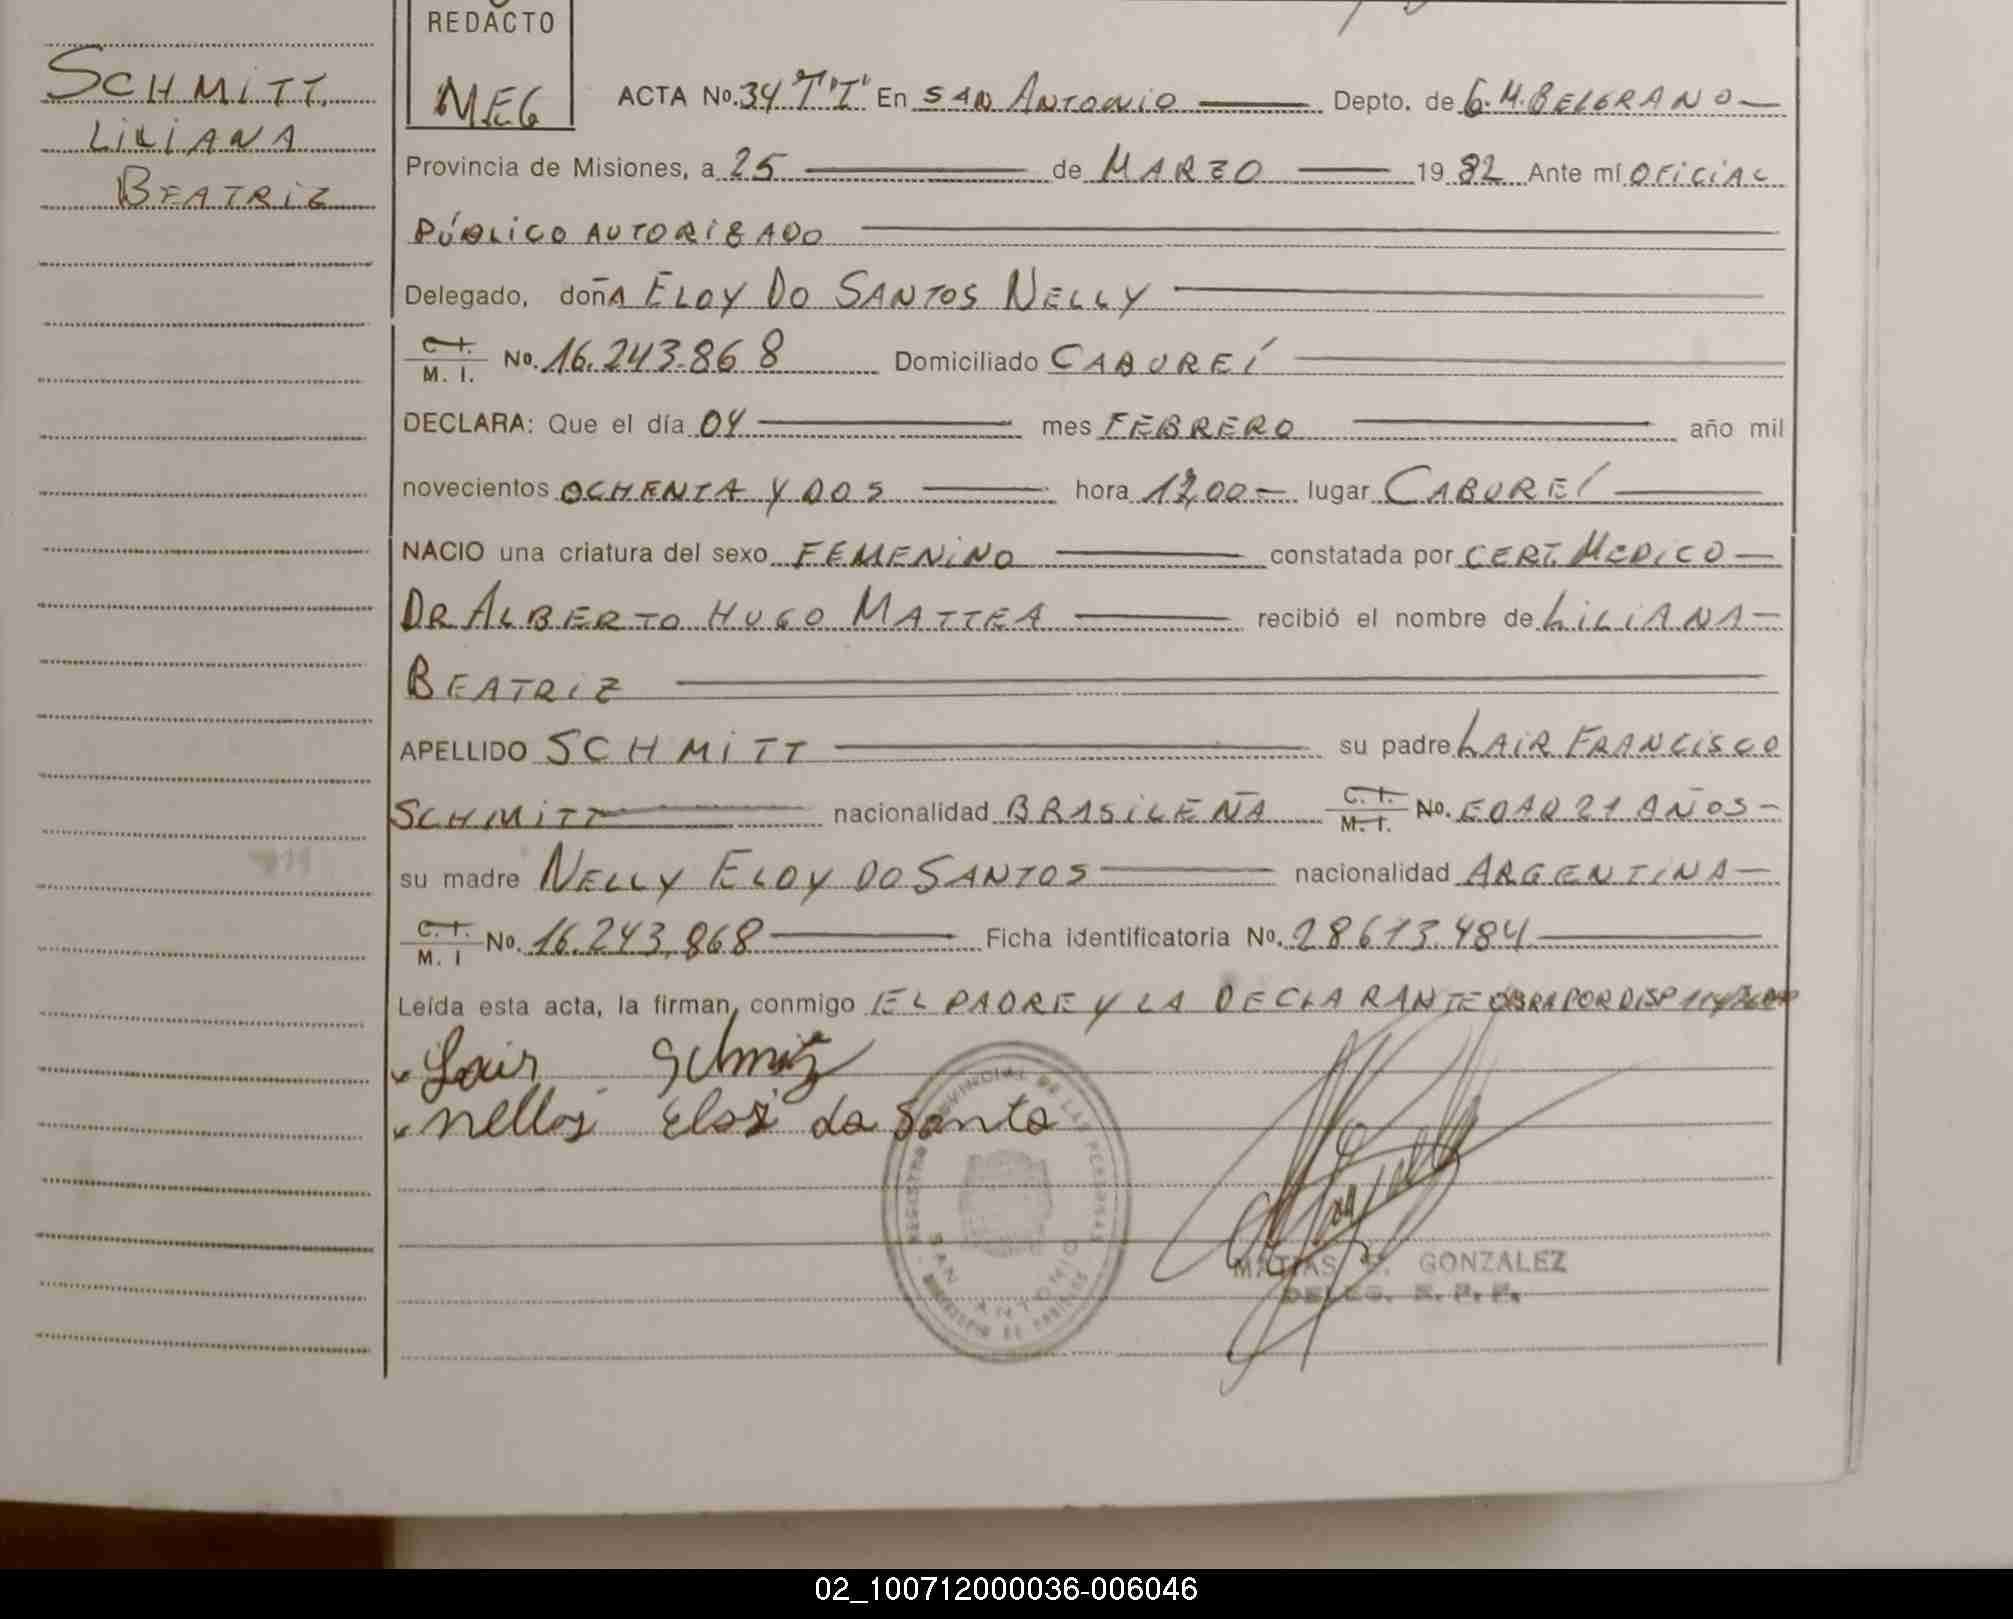 SCHMITT
LILIANA
BEATRIZ
REDACTO
MEG
ACTA No. 34 T"I" En SAN ANTONIO Depto. de G.M.BELGRANO
Provincia de Misiones, a 25 de MARZO 19 82 Ante mí OFICIAL
PÚBLICO AUTORIZADO
Delegado, doñA ELOY DO SANTOS NELLY
C. I.
M. I. No. 16.243.868 Domiciliado CABUREÍ
DECLARA: Que el día 04 mes FEBRERO año mil
novecientos OCHENTA Y DOS hora 12,00 lugar CABUREÍ
NACIO una criatura del sexo FEMENINO constatada por CERT. MEDICO
DR ALBERTO HUGO MATTEA recibió el nombre de LILIANA
BEATRIZ
APELLIDO SCHMITT su padre LAIR FRANCISCO
SCHMITT nacionalidad BRASILEÑA C. I. M. I. No. EDAD 21 AÑOS
su madre NELLY ELOY DO SANTOS nacionalidad ARGENTINA
C. I.
M. I No. 16.243.868 Ficha identificatoria No. 28613.484
Leída esta acta, la firman, conmigo EL PADRE Y LA DECLARANTE OBRA POR DISP
Lair Schmitz
Nelloy Eloi do Santo
REGISTRO PROVINCIAL DE LAS PERSONAS
SAN ANTONIO
MATIAS GONZALEZ
DELEG. R. P. P.
02_100712000036-006046